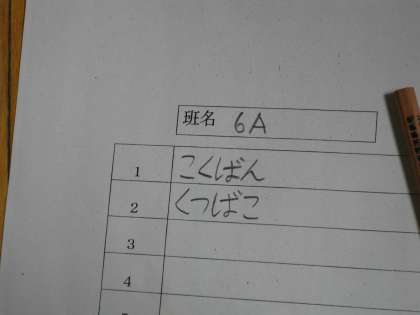 班名 6A
1 こくばん
2 くつばこ
3
4